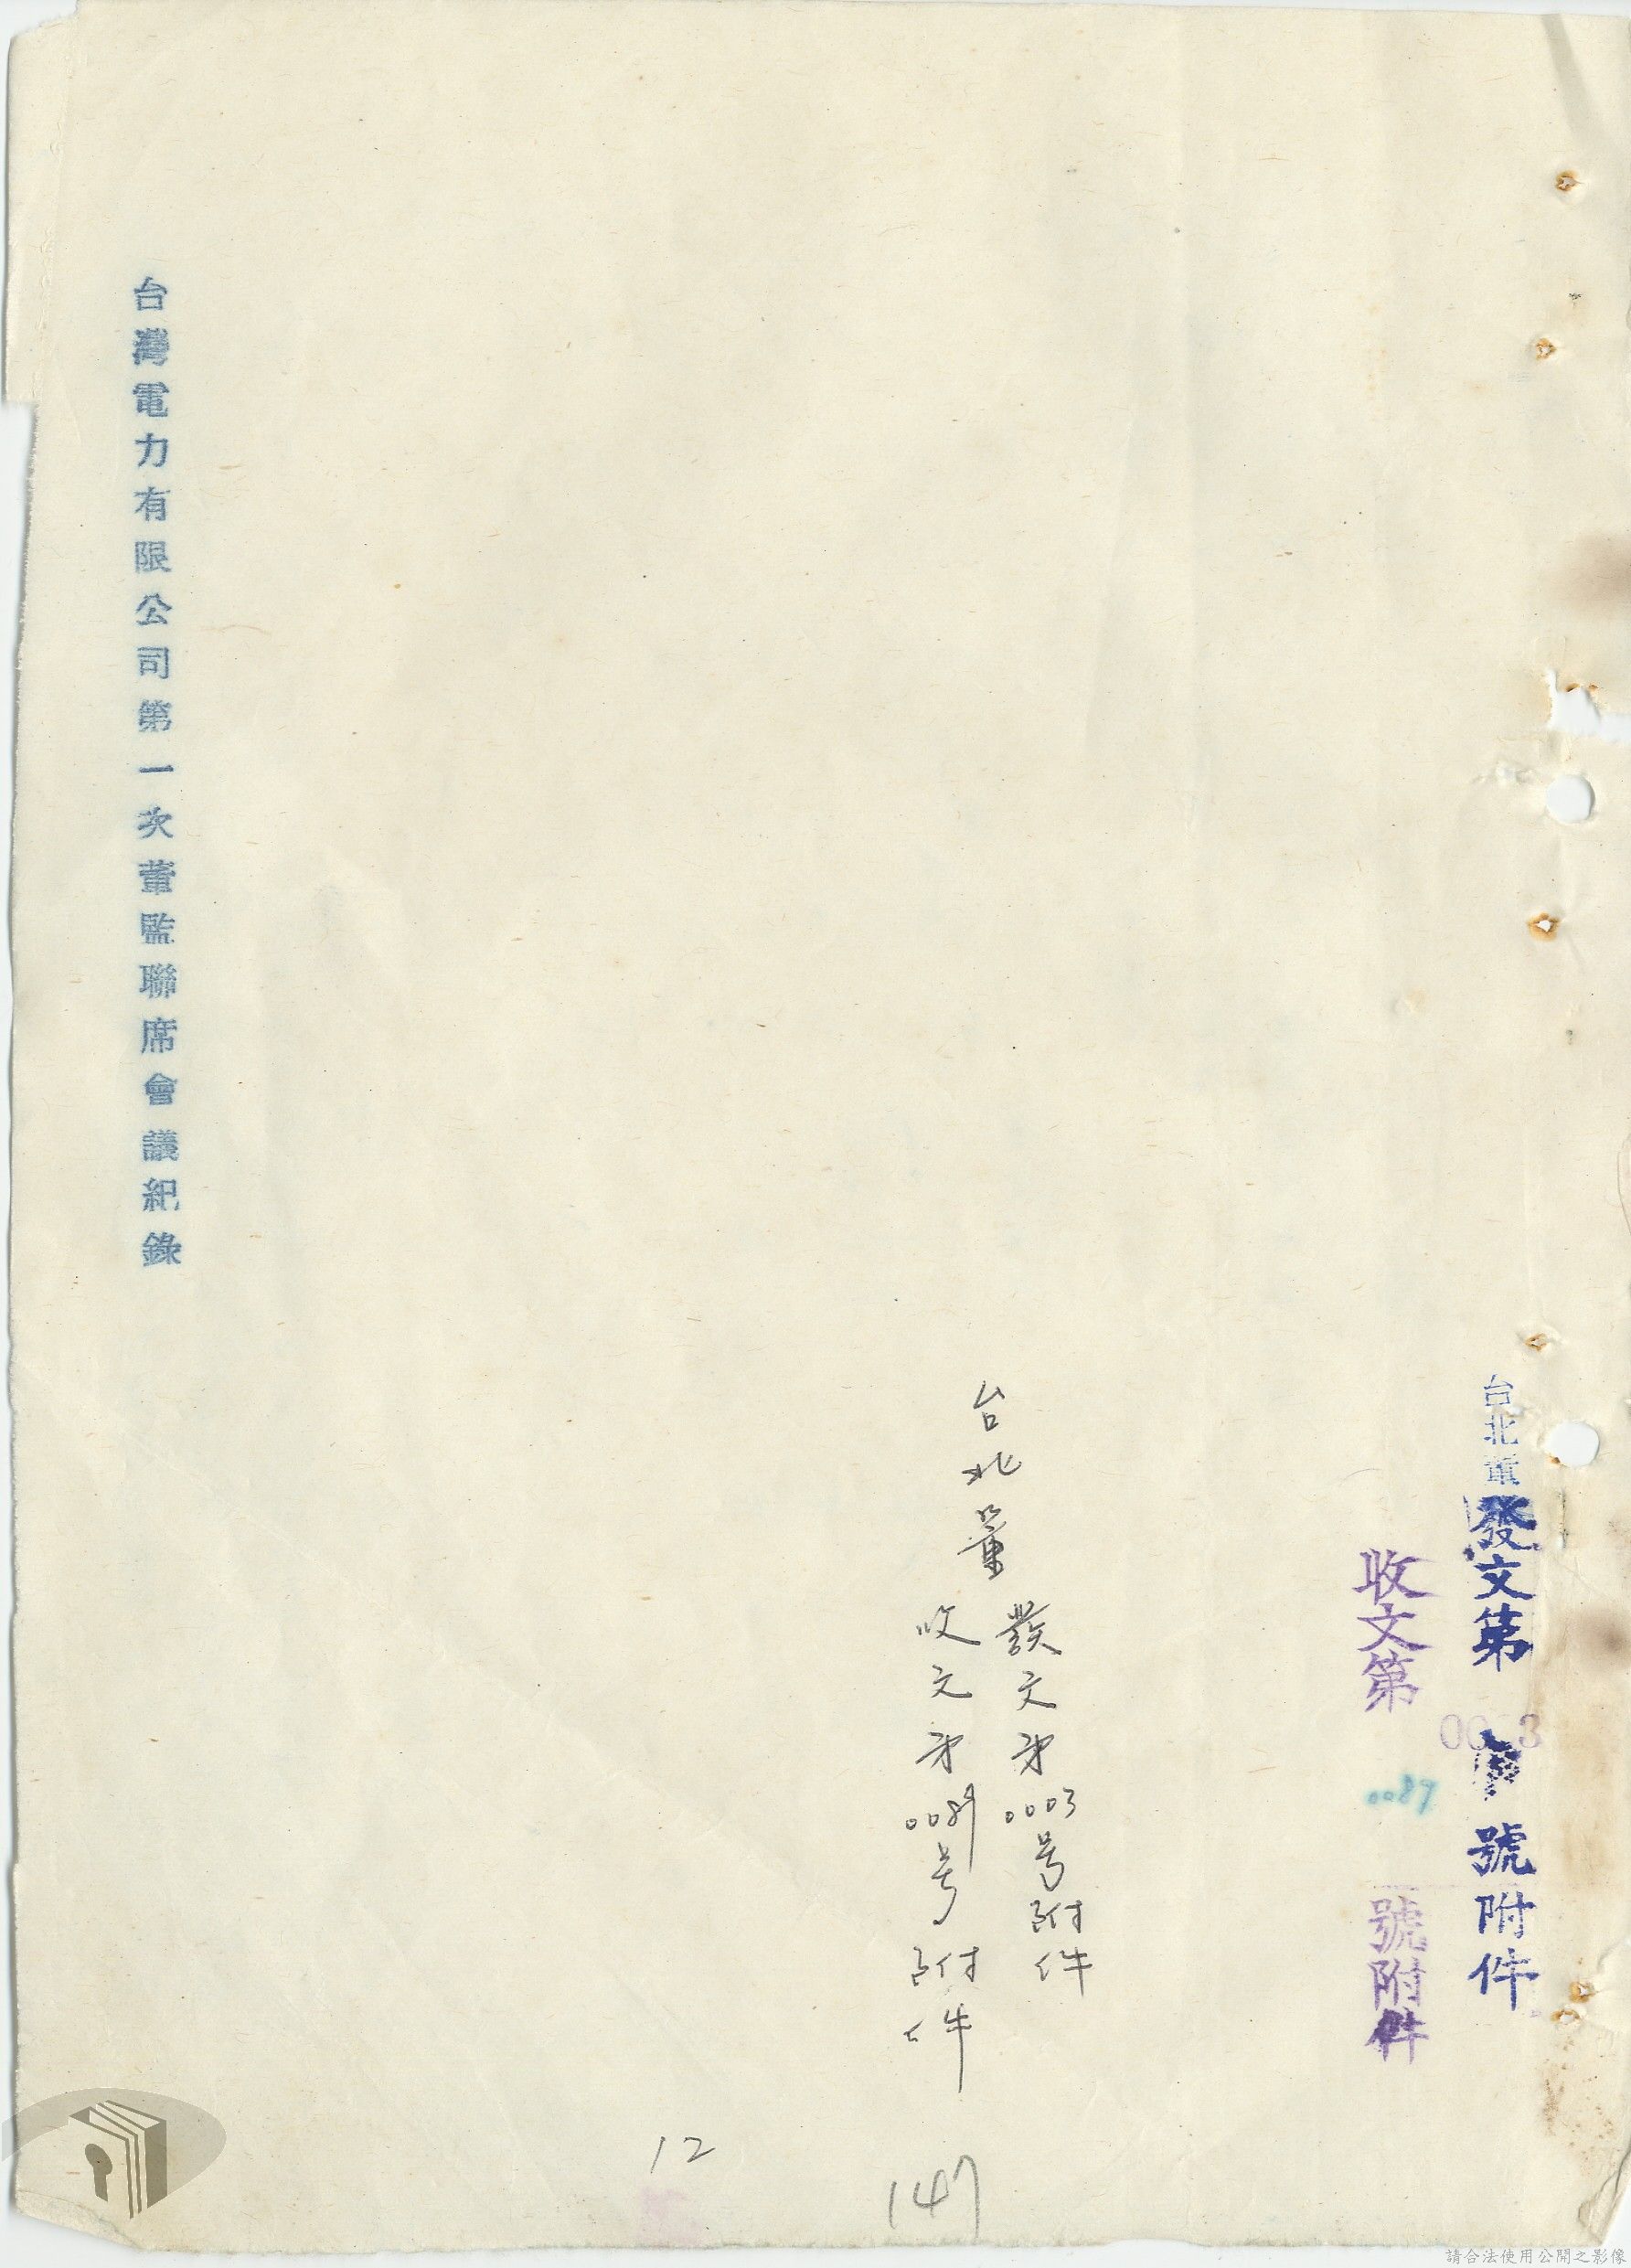 台北董發文第 0003 號附件
收文第 0089 號附件
台北董
發文第0003号附件
收文第0089号附件
台灣電力有限公司第一次董監聯席會議紀錄
12
147
請合法使用公開之影像